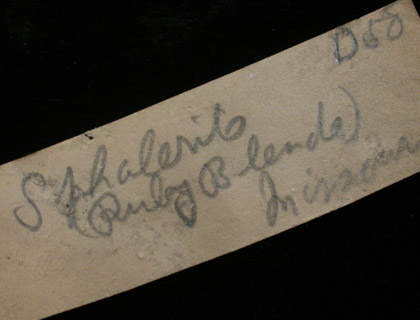 D58
Sphalerite
(Ruby Blende)
Missouri